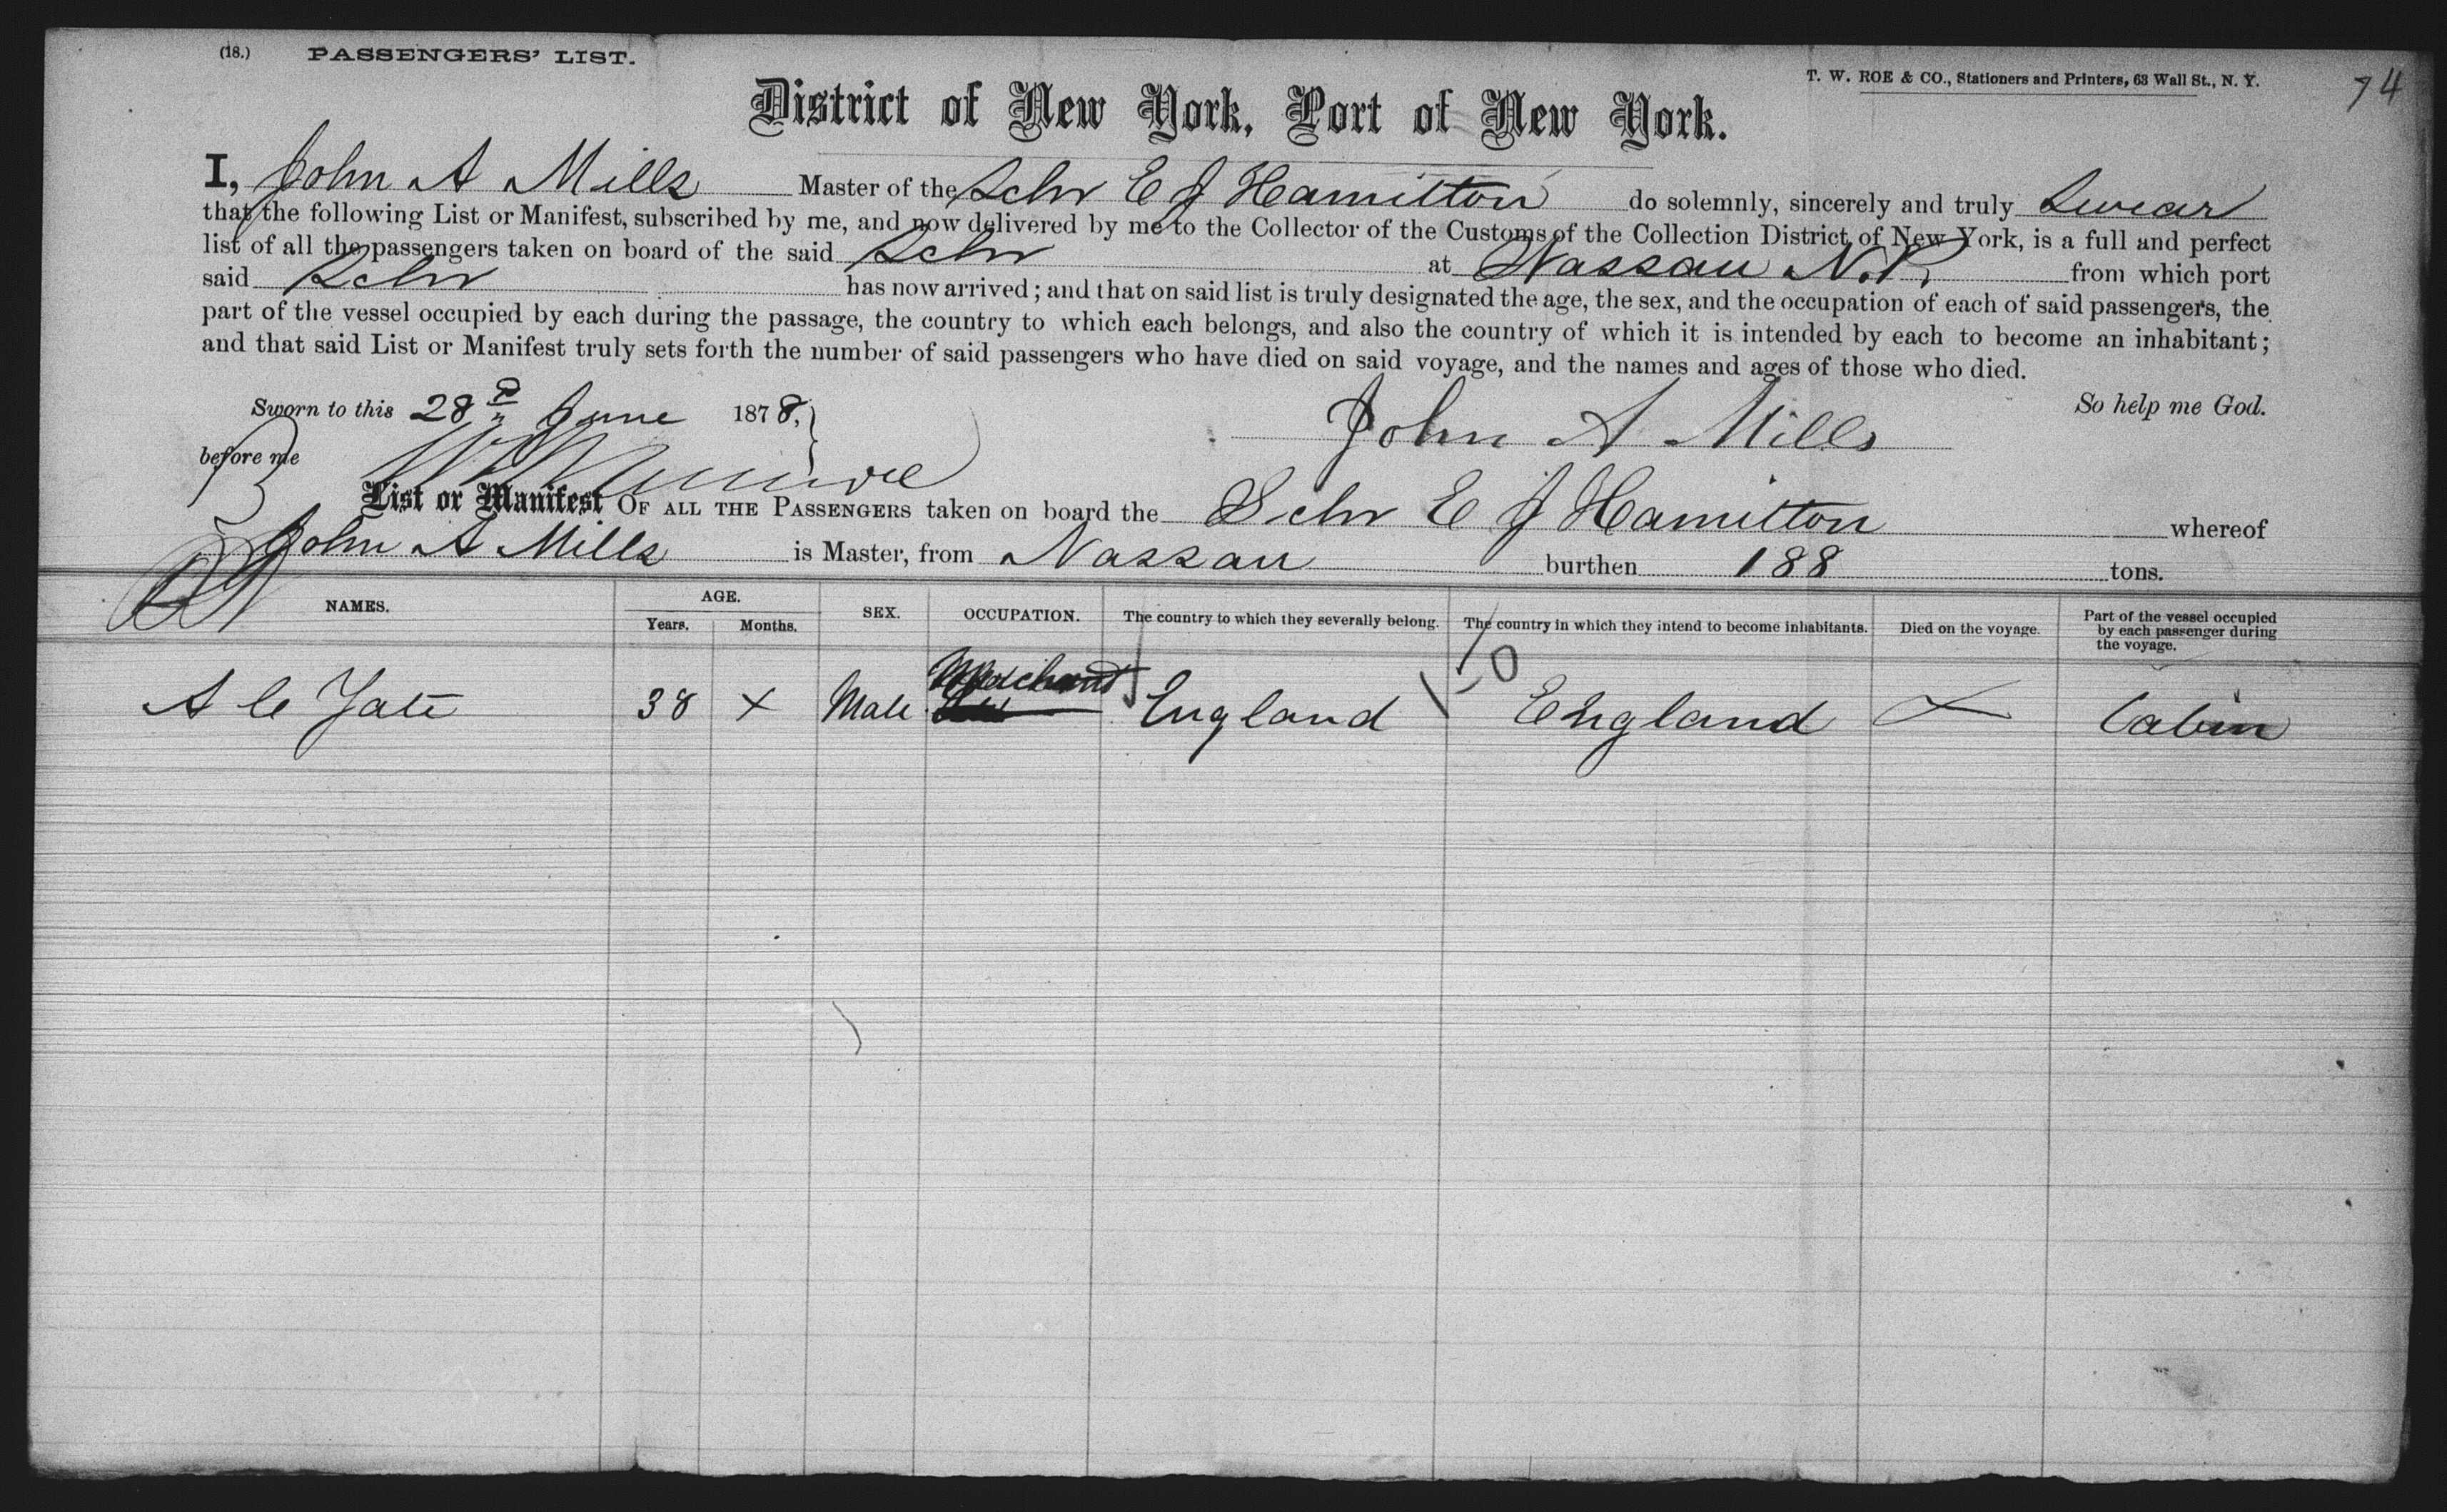 (18.) PASSENGERS' LIST.
T. W. ROE & CO., Stationers and Printers, 63 Wall St., N. Y.
74
District of New York, Port of New York.
I, John A Mills Master of the Schr E J Hamilton do solemnly, sincerely and truly Swear
that the following List or Manifest, subscribed by me, and now delivered by me to the Collector of the Customs of the Collection District of New York, is a full and perfect
list of all the passengers taken on board of the said Schr at Nassau N.P. from which port
said Schr has now arrived; and that on said list is truly designated the age, the sex, and the occupation of each of said passengers, the
part of the vessel occupied by each during the passage, the country to which each belongs, and also the country of which it is intended by each to become an inhabitant;
and that said List or Manifest truly sets forth the number of said passengers who have died on said voyage, and the names and ages of those who died.
Sworn to this 28 June 1878, So help me God.
John A Mills
before me
List or Manifest OF ALL THE PASSENGERS taken on board the Schr E J Hamilton whereof
John A Mills is Master, from Nassau burthen 188 tons.
NAMES. AGE. Years. Months. SEX. OCCUPATION. The country to which they severally belong. The country in which they intend to become inhabitants. Died on the voyage. Part of the vessel occupied by each passenger during the voyage.
10
A C Yate 38 x Male Merchant England England x Cabin